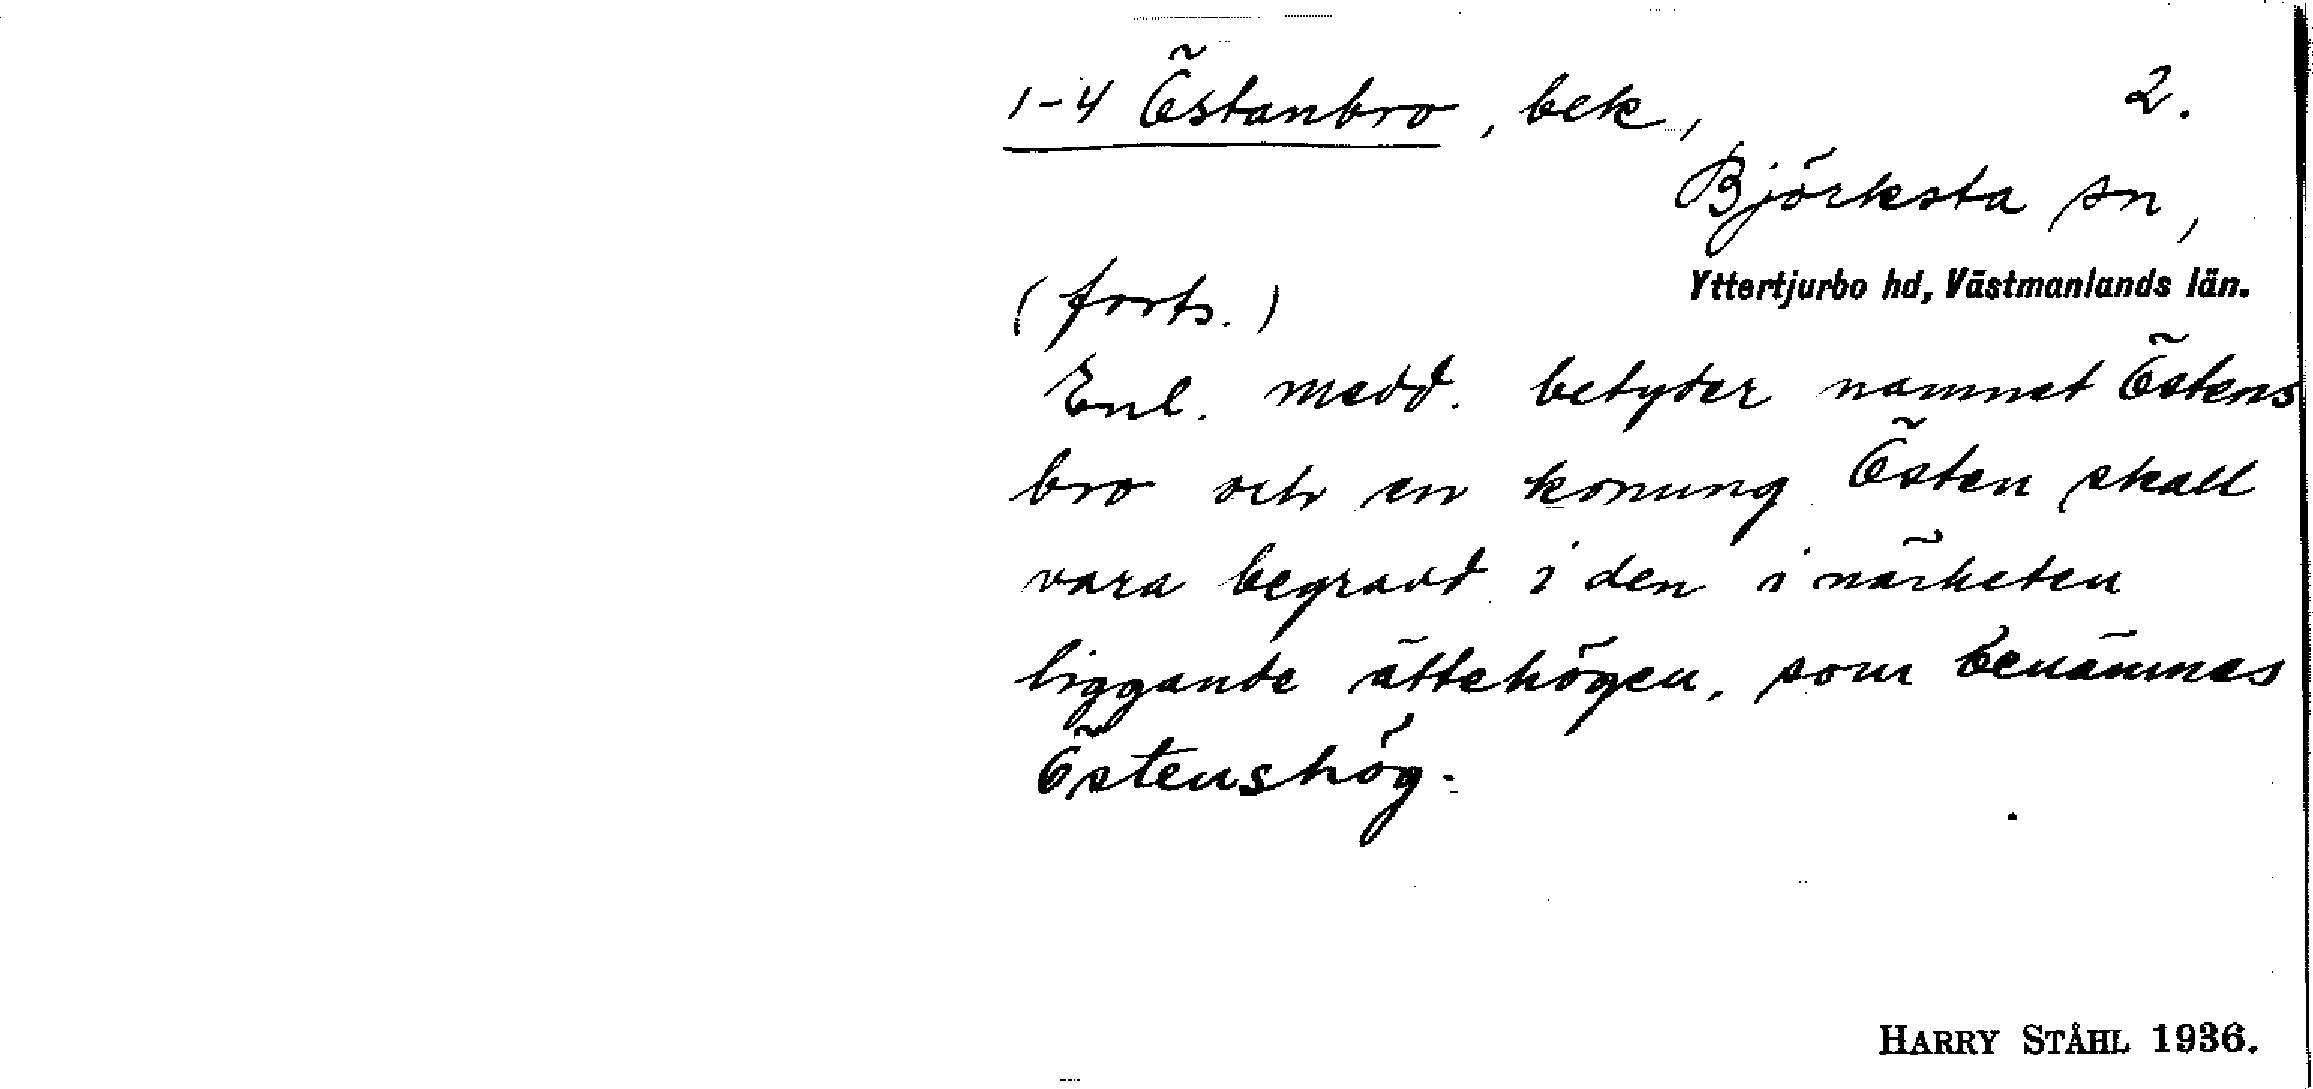 1-4 Östanbro, bek, 2.
Björksta sn,
Yttertjurbo hd, Västmanlands län.
(forts.)
Enl. medd. betyder namnet Östens
bro och en konung Östen skall
vara begravd i den i närheten
liggande ättehögen, som benämnes
Östenshög.
HARRY STÅHL 1936.